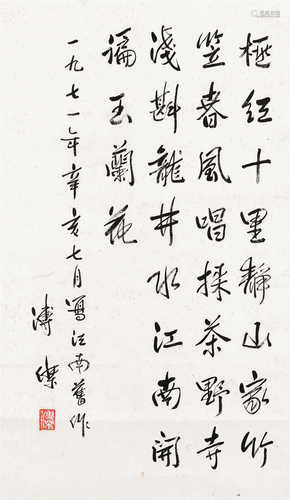 红十里靜山家竹
笠春風唱採茶野寺
淺斟龍井水江南開
遍玉蘭花
一九七一年辛亥七月寫江南舊作
溥傑